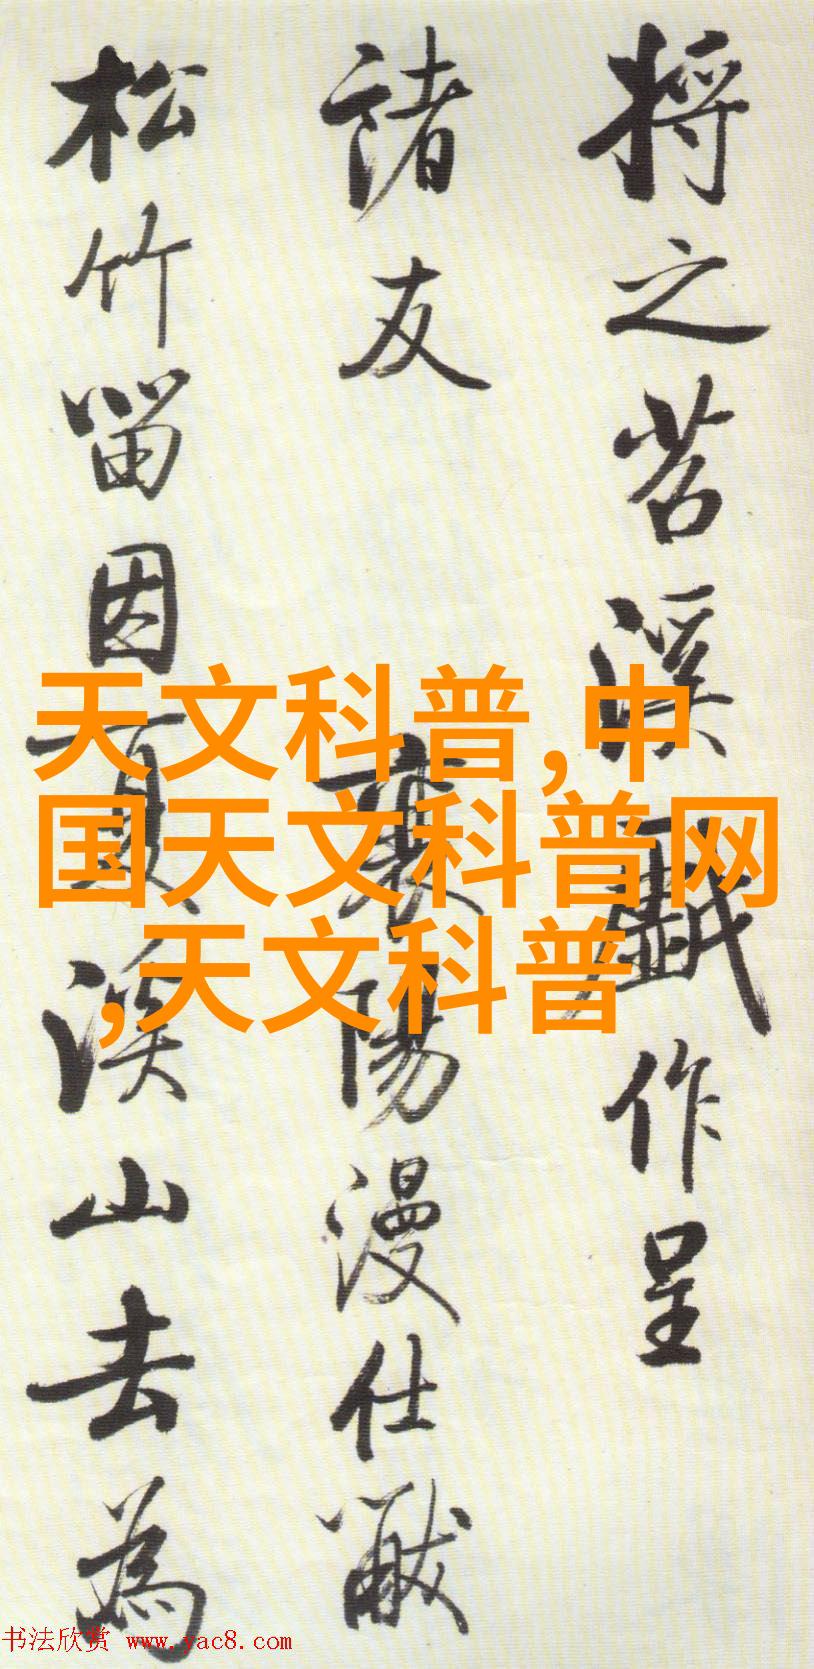 将之苕溪戯作呈
諸友
襄陽漫仕黻
松竹留因夏溪山去為
天文科普,中
国天文科普网
,天文科普
书法欣赏 www.yac8.com